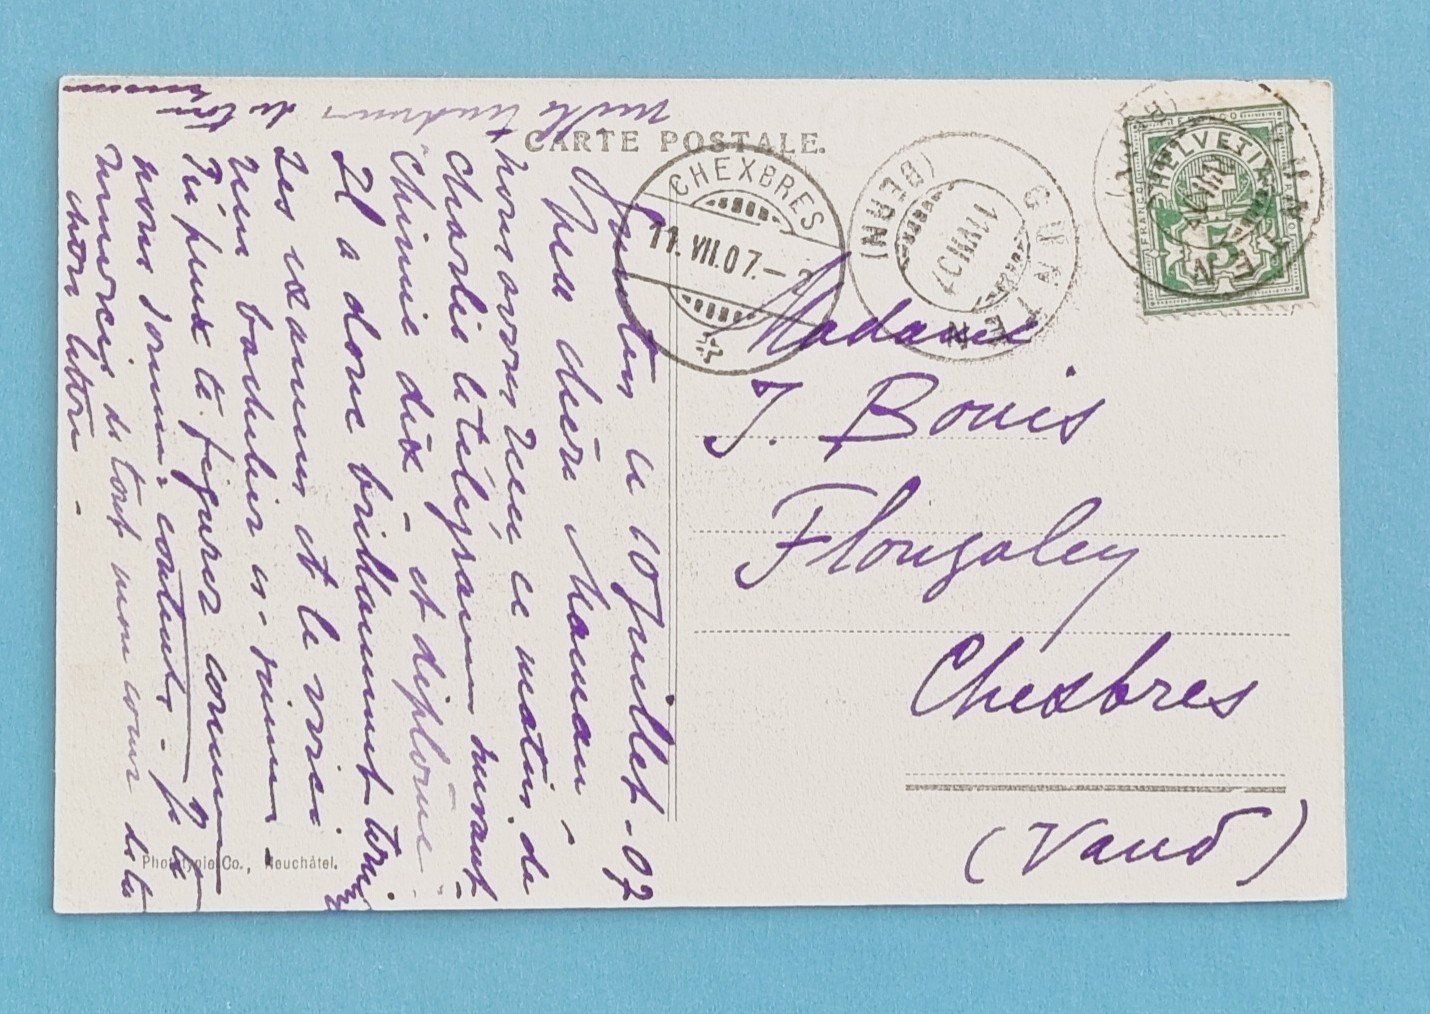 CARTE POSTALE.
CHEXBRES
11. VII. 07. - 2
GUNTEN
(BERN)
11 VII 07
HELVETIA
FRANCO
5
Madame
J. Bouis
Flougaley
Chexbres
(Vaud)
Gunten le 10 Juillet - 07
Ma chère Maman -
Nous avons reçu ce matin, de
Charlie le télégramme suivant
Chimie dix - et diplôme -
Il a donc brillamment terminé
ses examens et le voici
bachelier ès-
Tu peux te figurer comme
nous sommes contents - Je te
remercie de tout mon cœur de ta
chère lettre -
Mille tendresses de ton
Phototypie Co., Neuchâtel.